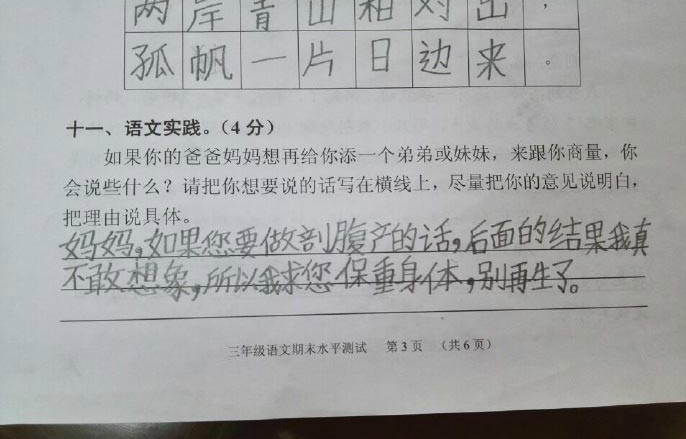 两岸青山相对出，
孤帆一片日边来。
十一、语文实践。（4分）
如果你的爸爸妈妈想再给你添一个弟弟或妹妹，来跟你商量，你
会说些什么？请把你想要说的话写在横线上，尽量把你的意见说明白，
把理由说具体。
妈妈，如果您要做剖腹产的话，后面的结果我真
不敢想象，所以我求您保重身体，别再生了。
三年级语文期末水平测试 第3页 （共6页）